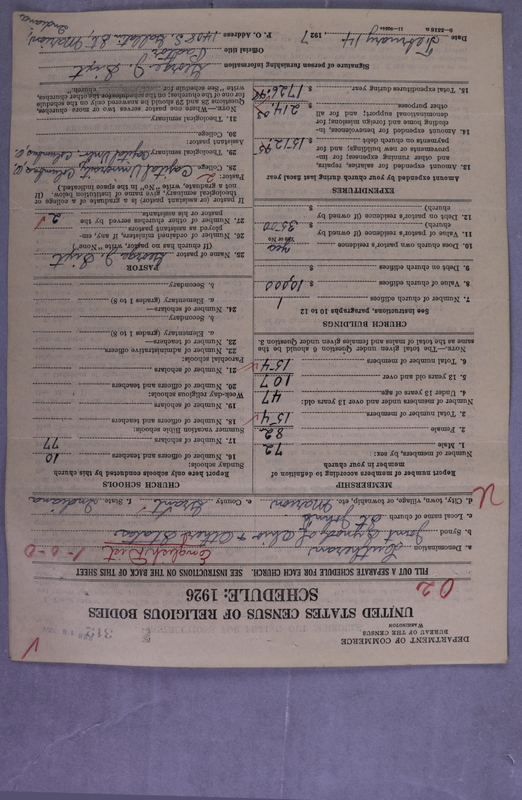 DEPARTMENT OF COMMERCE
BUREAU OF THE CENSUS
WASHINGTON
UNITED STATES CENSUS OF RELIGIOUS BODIES
SCHEDULE: 1926
FILL OUT A SEPARATE SCHEDULE FOR EACH CHURCH. SEE INSTRUCTIONS ON THE BACK OF THIS SHEET
a. Denomination Lutheran English Dist. 1-0-0
b. Synod Joint Synod of Ohio & Other States
c. Local name of church St. John's
d. City, town, village, or township, etc. Marion e. County Grant f. State Indiana
MEMBERSHIP
Report number of members according to definition of member in your church
Number of members, by sex:
1. Male 72
2. Female 82
3. Total number of members 154
Number of members under and over 13 years old:
4. Under 13 years of age 47
5. 13 years old and over 107
6. Total number of members 154
NOTE.—The total given under Question 6 should be the same as the total of males and females given under Question 3.
CHURCH BUILDINGS
See instructions, paragraphs 10 to 12
7. Number of church edifices 1
8. Value of church edifices $ 10,000
9. Debt on church edifices $
10. Does church own pastor's residence yes
Yes or No
11. Value of pastor's residence (if owned by church) $ 3500
12. Debt on pastor's residence (if owned by church) $
EXPENDITURES
Amount expended by your church during last fiscal year
13. Amount expended for salaries, repairs, and other running expenses; for improvements or new buildings; and for payments on church debt $ 1512.95
14. Amount expended for benevolences, including home and foreign missions; for denominational support; and for all other purposes $
15. Total expenditures during year $
CHURCH SCHOOLS
Report here only schools conducted by this church
Sunday schools:
16. Number of officers and teachers 10
17. Number of scholars 77
Summer vacation Bible schools:
18. Number of officers and teachers
19. Number of scholars
Week-day religious schools:
20. Number of officers and teachers
21. Number of scholars
Parochial schools:
22. Number of administrative officers
23. Number of teachers—
a. Elementary (grades 1 to 8)
b. Secondary
24. Number of scholars—
a. Elementary (grades 1 to 8)
b. Secondary
PASTOR
25. Name of pastor George J. Gixt
(If church has no pastor, write "None")
26. Number of ordained ministers, if any, employed as assistant pastors
27. Number of other churches served by the pastor or his assistants 2
If pastor or assistant pastor is a graduate of a college or theological seminary, give name of institution below. (If not a graduate, write "No" in the space indicated.)
Pastor:
28. College Capital University, Columbus, O.
29. Theological seminary Capital Univ. Columbus, O.
Assistant pastor:
30. College
31. Theological seminary
NOTE.—Where one pastor serves two or more churches, Questions 28 and 29 should be answered only on the schedule for one of the churches; on the schedules for the other churches, write "See schedule for church."
Signature of person furnishing information George J. Gixt
Official title Pastor
P. O. Address 1408 S. Gallatin St., Marion, Indiana
Date February 14 1927